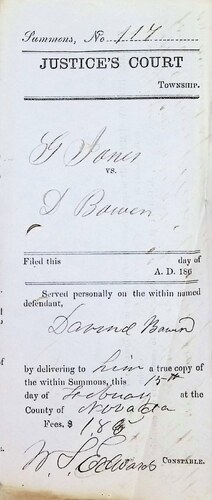 Summons, No. 117
JUSTICE'S COURT
TOWNSHIP.
G Jones
vs.
D Bowen
Filed this day of
A. D. 186
Served personally on the within named
defendant,
Bowen
by delivering to him a true copy of
the within Summons, this 15th
day of February at the
County of Nevada
Fees. $
W. S. Edwards CONSTABLE.